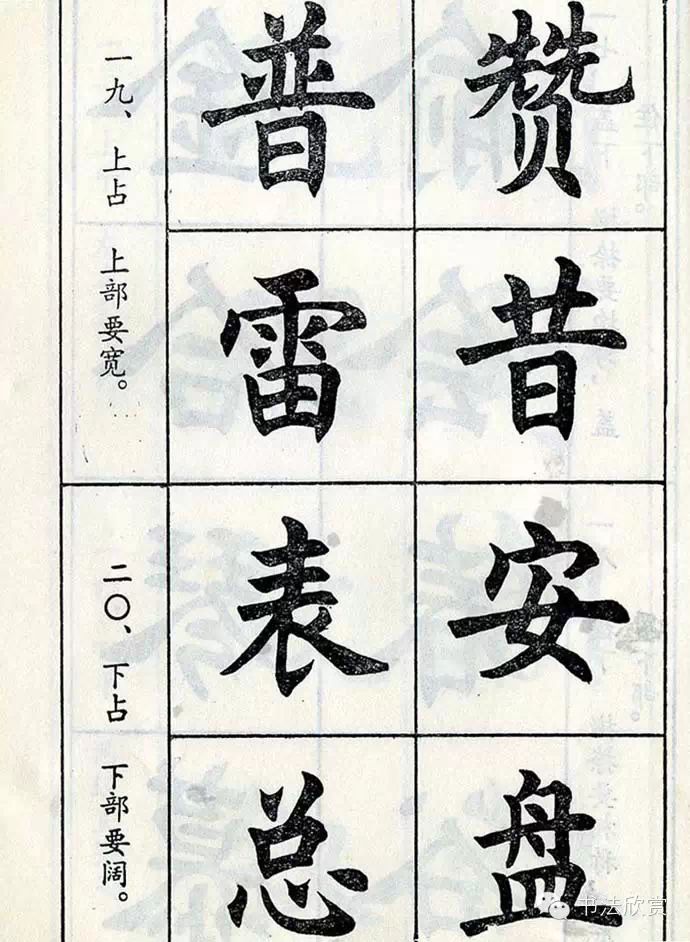 赞昔安盘
普雷表总
一九、上占 上部要宽。
二〇、下占 下部要阔。
书法欣赏